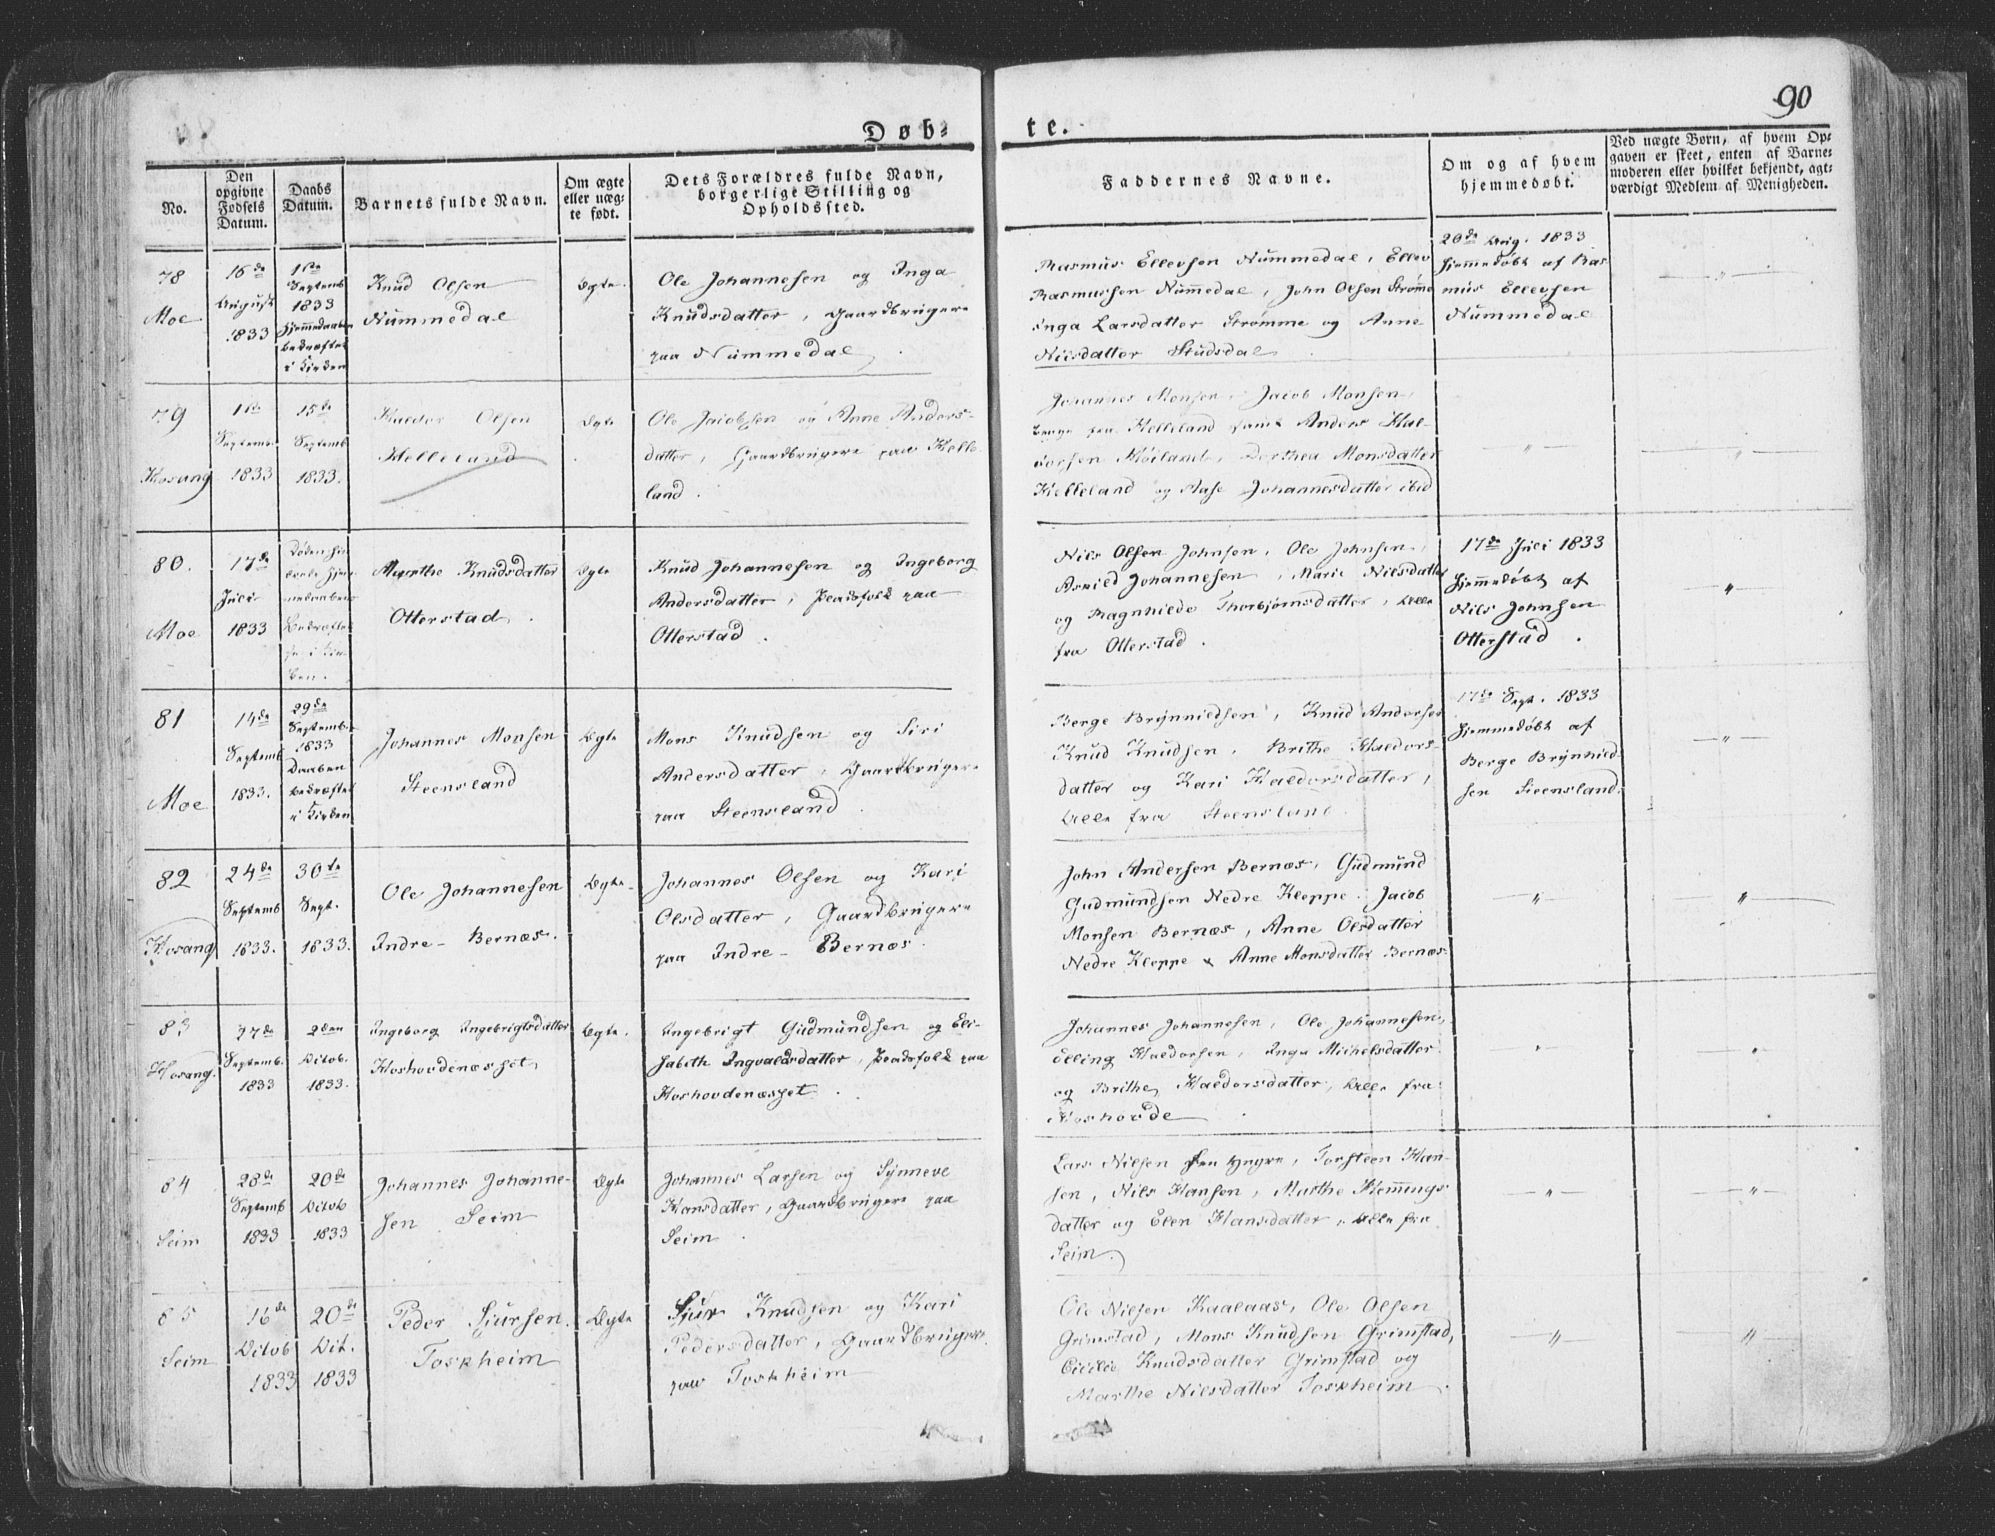 90
Døb-
te.
No.
Den
opgivne
Fødsels
Datum.
Daabs
Datum.
Barnets fulde Navn.
Om ægte
eller uæg-
te født.
Dets Forældres fulde Navn,
borgerlige Stilling og
Opholdssted.
Faddernes Navne.
Om og af hvem
hjemmedøbt.
Ved uægte Børn, af hvem Op-
gaven er skeet, enten af Barne-
moderen eller hvilket bekjendt, agt-
værdigt Medlem af Menigheden.
78
Moe
16de
August
1833
1ste
Septemb
1833
Hjemmedaaben
bekræftet
i Kirken
Knud Olsen
Nummedal
Ægte.
Ole Johannesen og Inga
Knudsdatter, Gaardbrugere
paa Nummedal
Rasmus Ellevsen Nummedal, Ellev
Rasmussen Nummedal, John Olsen Strømme
Inga Larsdatter Strømme og Anne
Nilsdatter Studsdal
20de Aug. 1833
hjemmedøbt af Ras
mus Ellevsen
Nummedal
79
Hosang
1ste
Septemb.
1833
15de
Septemb
1833.
Haldor Olsen
Helleland
Ægte
Ole Jacobsen og Anne Anders-
datter, Gaardbrugere paa Helle-
land.
Johannes Monsen, Jacob Monsen,
begge fra Helleland samt Anders Hal-
dorsen Kleiland, Dorthea Monsdatter
Helleland og Aase Johannesdatter ibid
80.
Moe
17de
Juli
1833
Myrthe Knudsdatter
Otterstad.
Ægte
Knud Johannesen og Ingeborg
Andersdatter, Pladsfolk paa
Otterstad.
Nils Olsen Johnsen, Ole Johnsen,
Arvild Johannesen, Marie Nilsdatter
og Magnhilde Thorbjørnsdatter, alle
fra Otterstad.
17de Juli 1833
hjemmedøbt af
Nils Johnsen
Otterstad.
81
Moe
14de
Septemb
1833.
29de
Septemb.
1833
Daaben
bekræftet
i Kirken
Johannes Monsen
Steensland
Ægte
Mons Knudsen og Siri
Andersdatter, Gaardbrugere
paa Steensland.
Berge Brynnildsen, Knud Andersen
Knud Knudsen, Brithe Haldors-
datter og Kari Haldorsdatter,
alle fra Steensland.
17de Sept. 1833
hjemmedøbt af
Berge Brynnild-
sen Steensland.
82
Hosang
24de
Septemb
1833.
30te
Sept.
1833.
Ole Johannesen
Indre-Bernæs.
Ægte.
Johannes Olsen og Kari
Olsdatter, Gaardbrugere
paa Indre-Bernæs.
John Andersen Bernæs, Gudmund
Gudmundsen Nedre Kleppe, Jacob
Monsen Bernæs, Anne Olsdatter
Nedre Kleppe & Anne Monsdatter Bernæs
83
Hosang.
27de
Septemb.
1833
2den
Octob.
1833.
Ingeborg Ingebrigtsdatter
Hoshovdenæsset
Ægte.
Ingebrigt Gudmundsen og Eli-
sabeth Ingvaldsdatter, Pladsfolk paa
Hoshovdenæsset.
Johannes Johannesen, Ole Johannesen,
Elling Haldorsen, Inga Michelsdatter
og Brithe Haldorsdatter, alle fra
Hoshovde
84
Seim
28de
Septemb
1833
20de
Octob
1833
Johannes Johanne-
sen Seim
Ægte
Johannes Larsen og Synneve
Hansdatter, Gaardbrugere paa
Seim.
Lars Nilsen den yngre, Torsteen Han-
sen, Nils Hansen, Marthe Flemmings
datter og Elen Hansdatter, alle fra
Seim.
85
Seim
16de
Octob
1833
20de
Oct.
1833
Peder Siursen.
Toskheim
Ægte
Sjur Knudsen og Kari
Pedersdatter, Gaardbrugere
paa Toskheim
Ole Nilsen Kaalaas, Ole Olsen
Grimstad, Mons Knudsen Grimstad,
Cicilie Knudsdatter Grimstad og
Marthe Nilsdatter Toskheim.